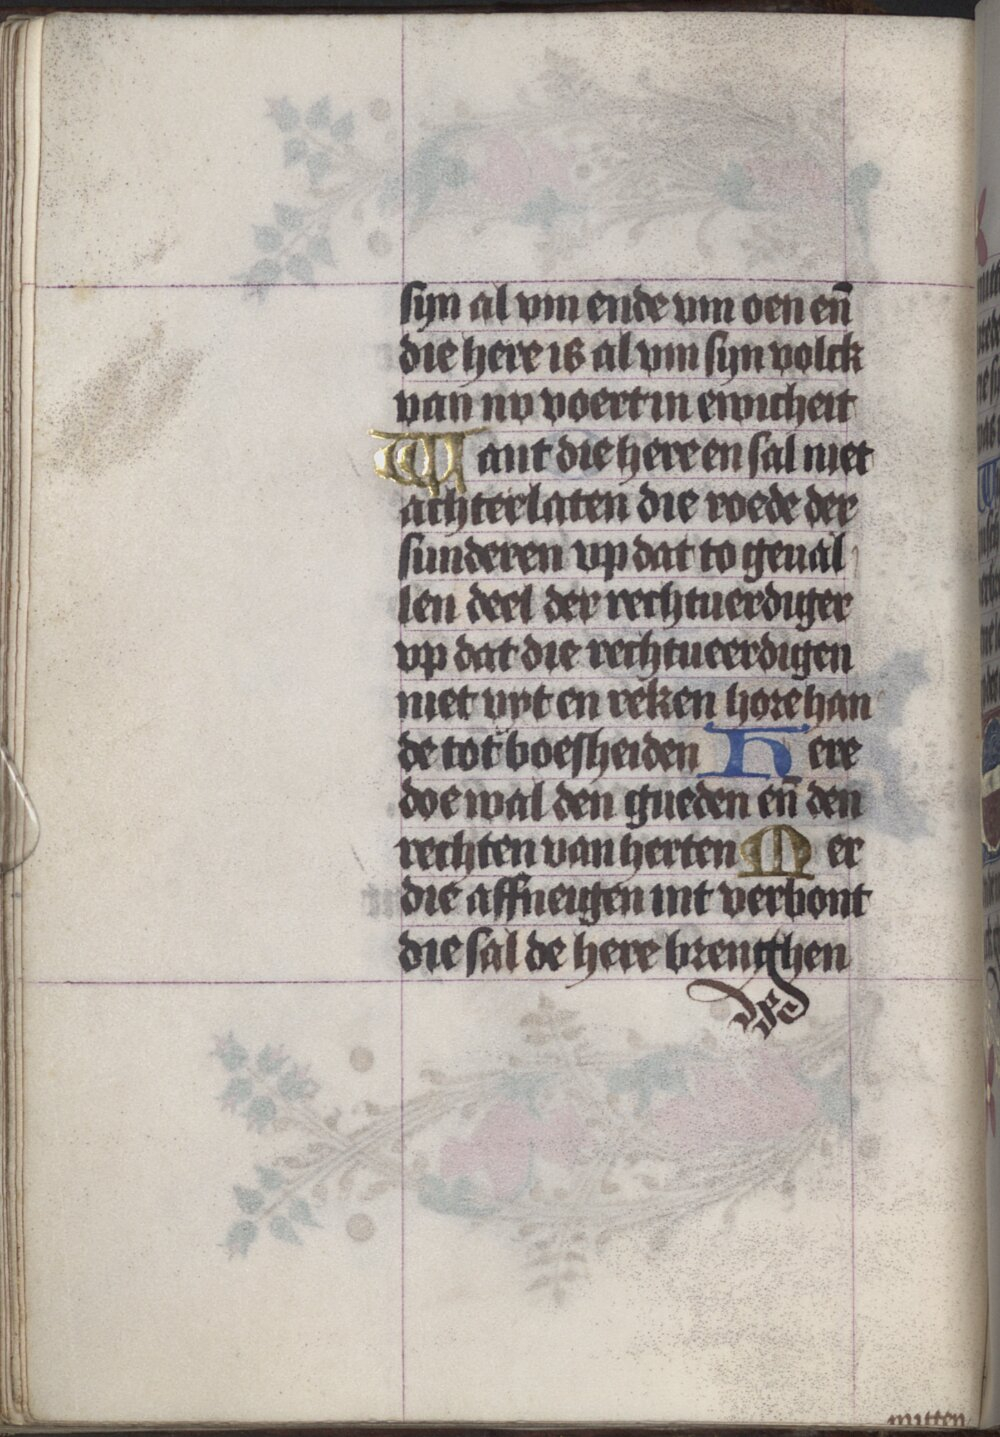 syn al vm ende vm oen en̄
die here is al vm syn volck
van nv voert in ewicheit
Want die here en sal niet
achterlaten die roede der
sunderen vp dat to geual
len deel der rechtuerdiger
vp dat die rechtueerdigen
niet vyt en reken hore han
de tot boesheiden Here
doe wal den gueden en̄ den
rechten van herten Mer
die affneigen int verbont
die sal de here brengen
mitten